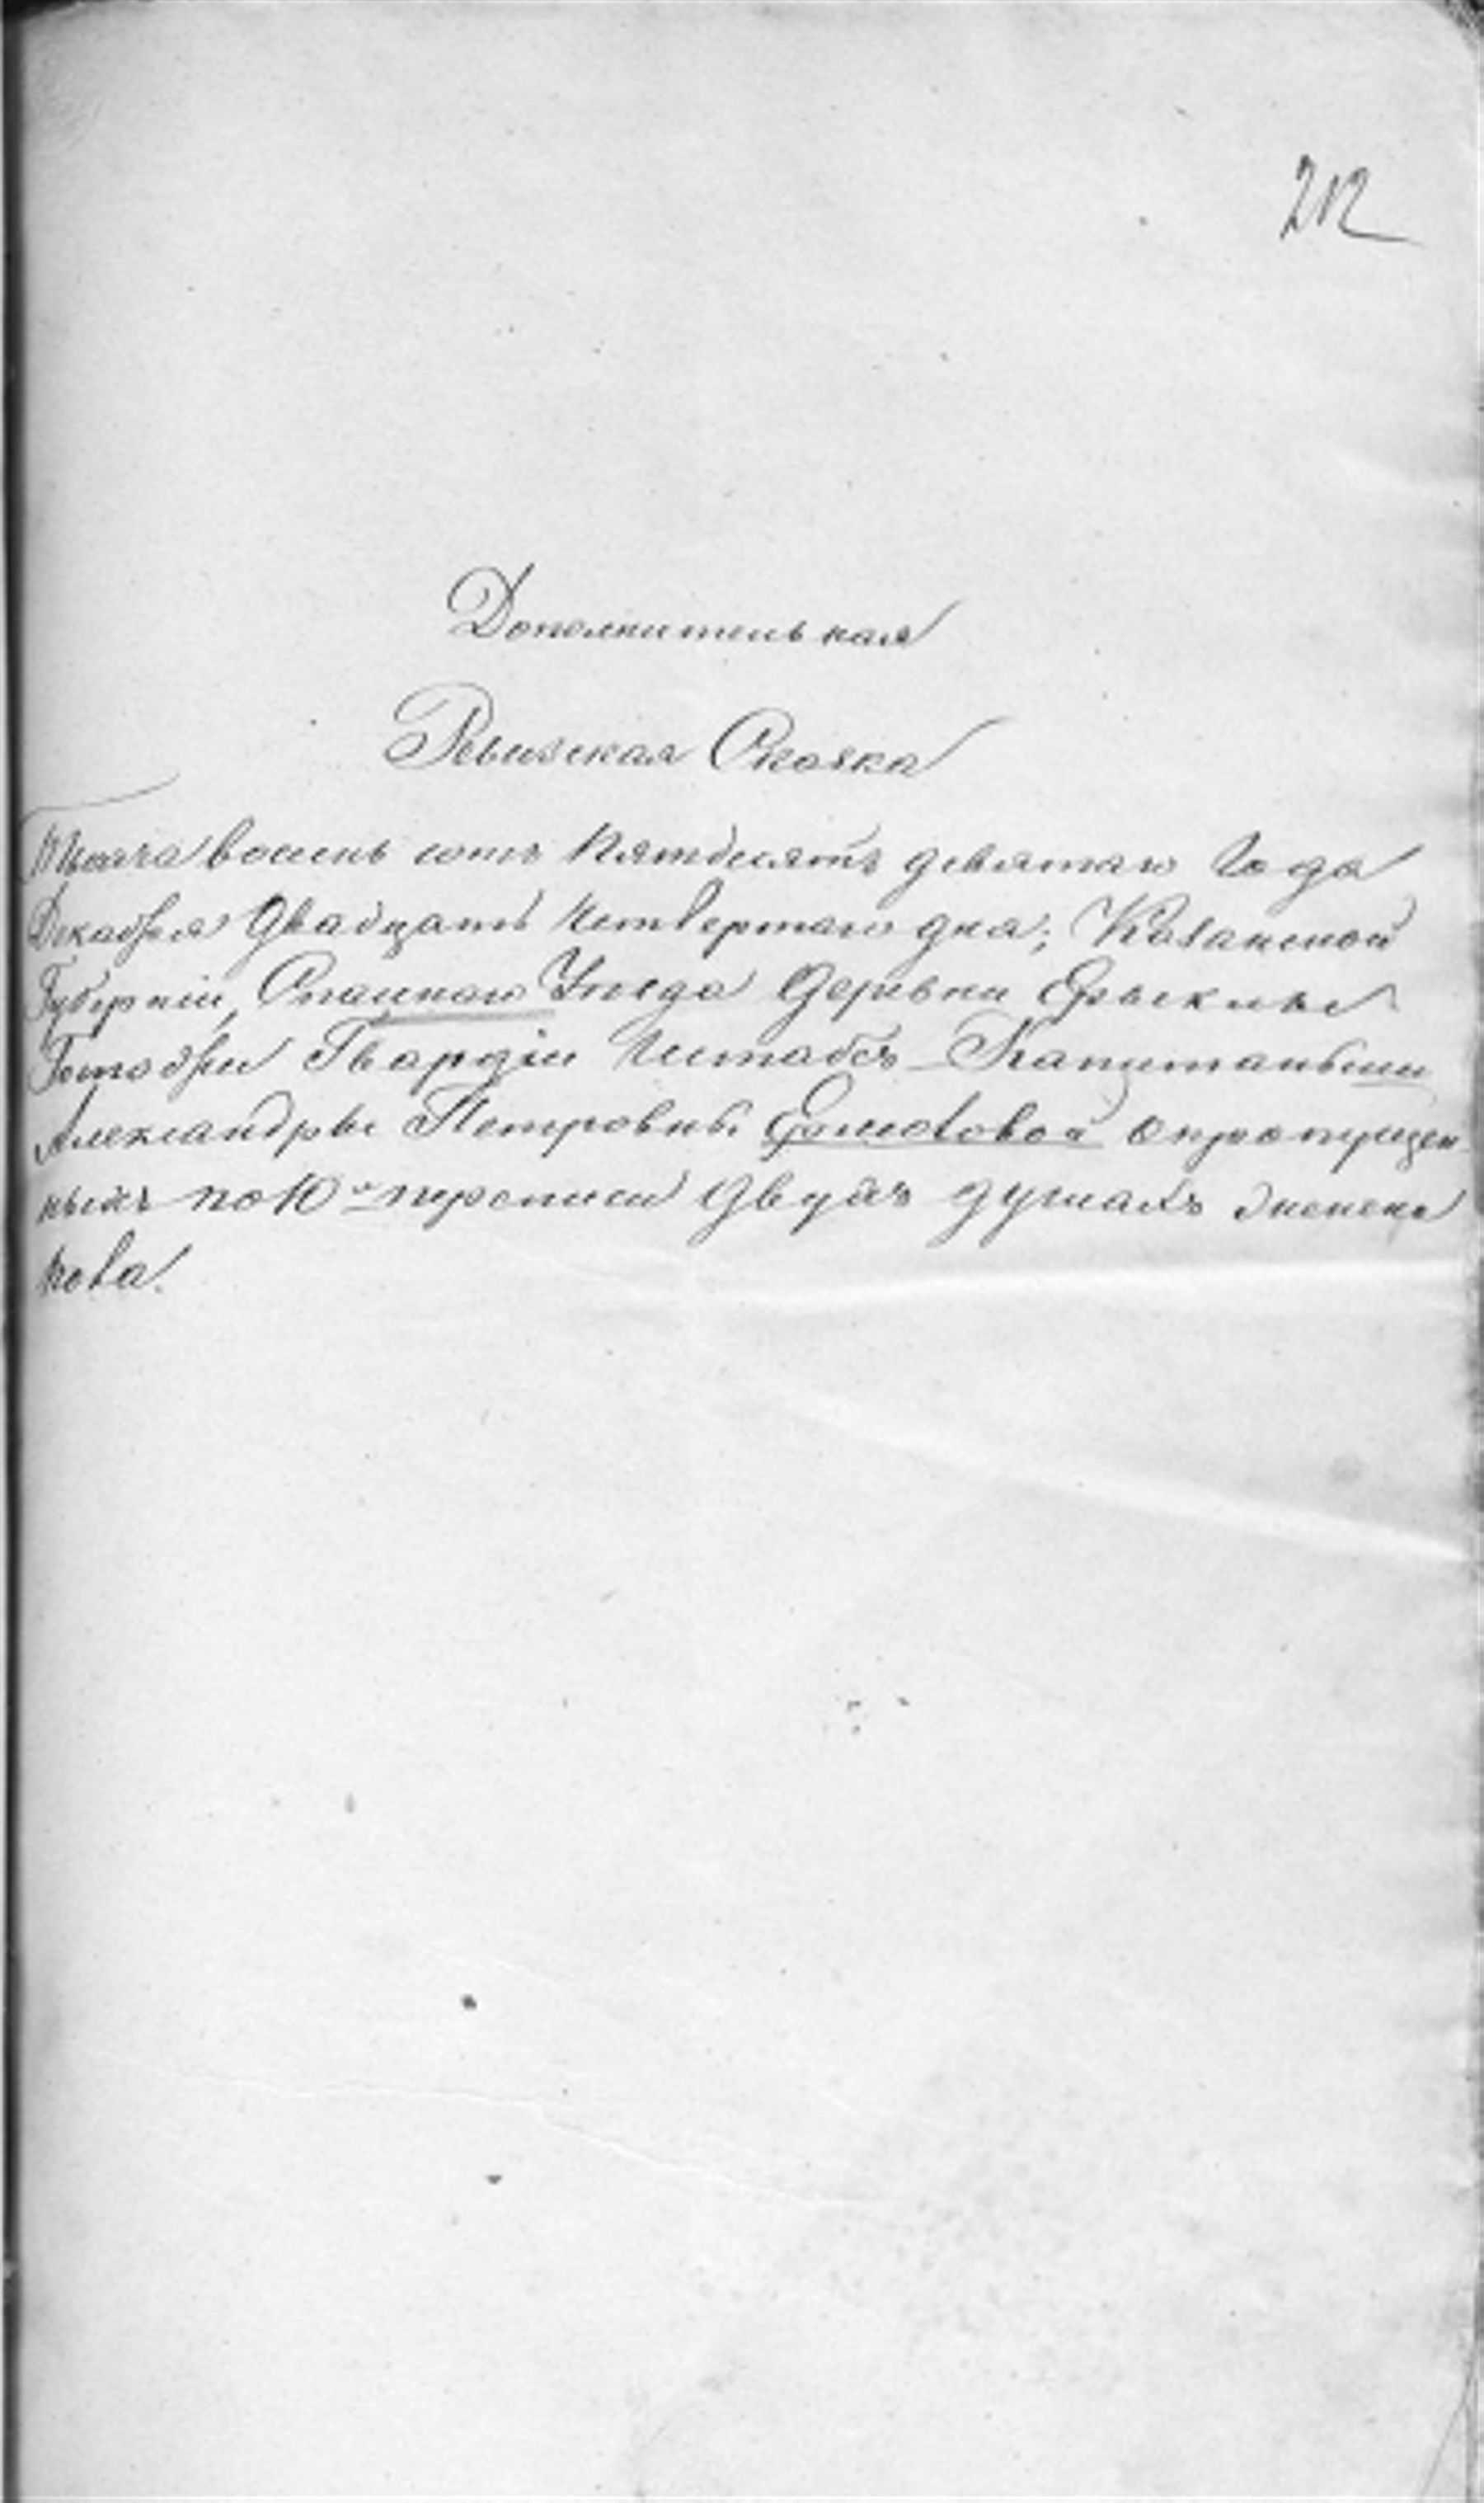 212
Дополнительная
Ревизская Сказка
Тысяча восемь сотъ Пятьдесятъ девятаго Года
Декабря Двадцать Четвертаго дня; Казанской
Губерніи, Спаскаго Уѣзда Деревни Ерыклы
Гвардіи Штабсъ-Капитанши
Александры Петровны о пропущен
ныхъ по 10й переписи двухъ душахъ женска
пола.